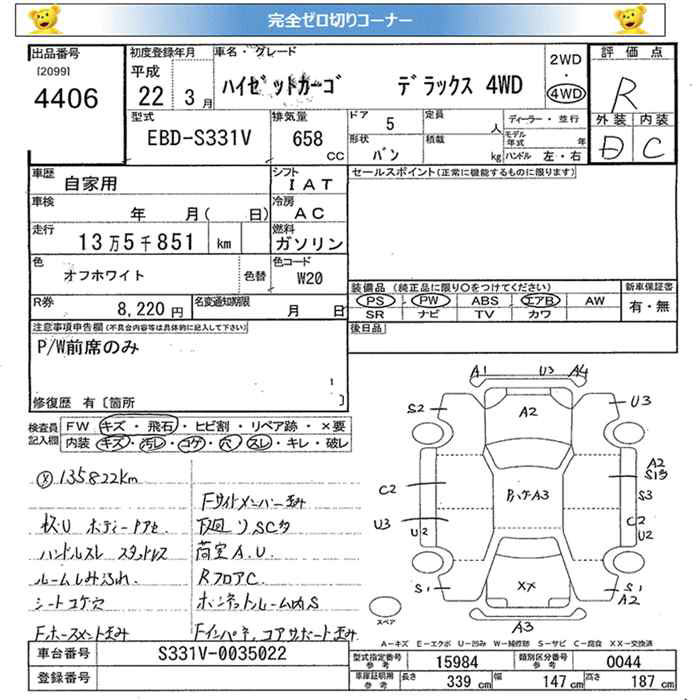 完全ゼロ切りコーナー
出品番号
[2099]
4406
初度登録年月
平成
22 年 3 月
車名・グレード
ハイゼットカーゴ デラックス 4WD
2WD
・
4WD
評価点
R
外装 内装
D C
型式
EBD-S331V
排気量
658
CC
ドア 5
形状 バン
定員 人
積載 kg
ディーラー・並行
モデル年式 年
ハンドル 左・右
車歴
自家用
シフト
IAT
車検
年 月( 日)
冷房
AC
走行
13万5千851 km
燃料
ガソリン
色
オフホワイト
色替
色コード
W20
R券
8,220 円
名変通知期限
月 日
セールスポイント(正常に機能するものに限ります)
装備品 (純正品に限り○をつけてください)
PS PW ABS エアB AW
SR ナビ TV カワ
新車保証書
有・無
後日品
注意事項申告欄(不具合内容等は具体的に記入して下さい)
P/W前席のみ
修復歴 有〔箇所 〕
検査員記入欄
FW キズ・飛石・ヒビ割・リペア跡・×要
内装 キズ・汚レ・コゲ・穴・スレ・キレ・破レ
135822km
ハンドルスレ スタッドレス
ルームしみ汚れ
シートコゲ穴
Fサイドメンバー歪み
下廻りSC多
荷室A.U
RフロアC
ボンネットルーム内S
Fインパネ、コアサポート歪み
A1 U3 A4
S2 A2 U3
C2 A2
S13
S3
U3 U2 C2
U2
S1 XX S1
A2
A3
スペア
A-キズ E-エクボ U-凹み W-補修跡 S-サビ C-腐食 XX-交換済
車台番号 S331V-0035022
登録番号
型式指定番号 参考 15984
類別区分番号 参考 0044
車庫証明用 参考 長さ 339 cm 幅 147 cm 高さ 187 cm